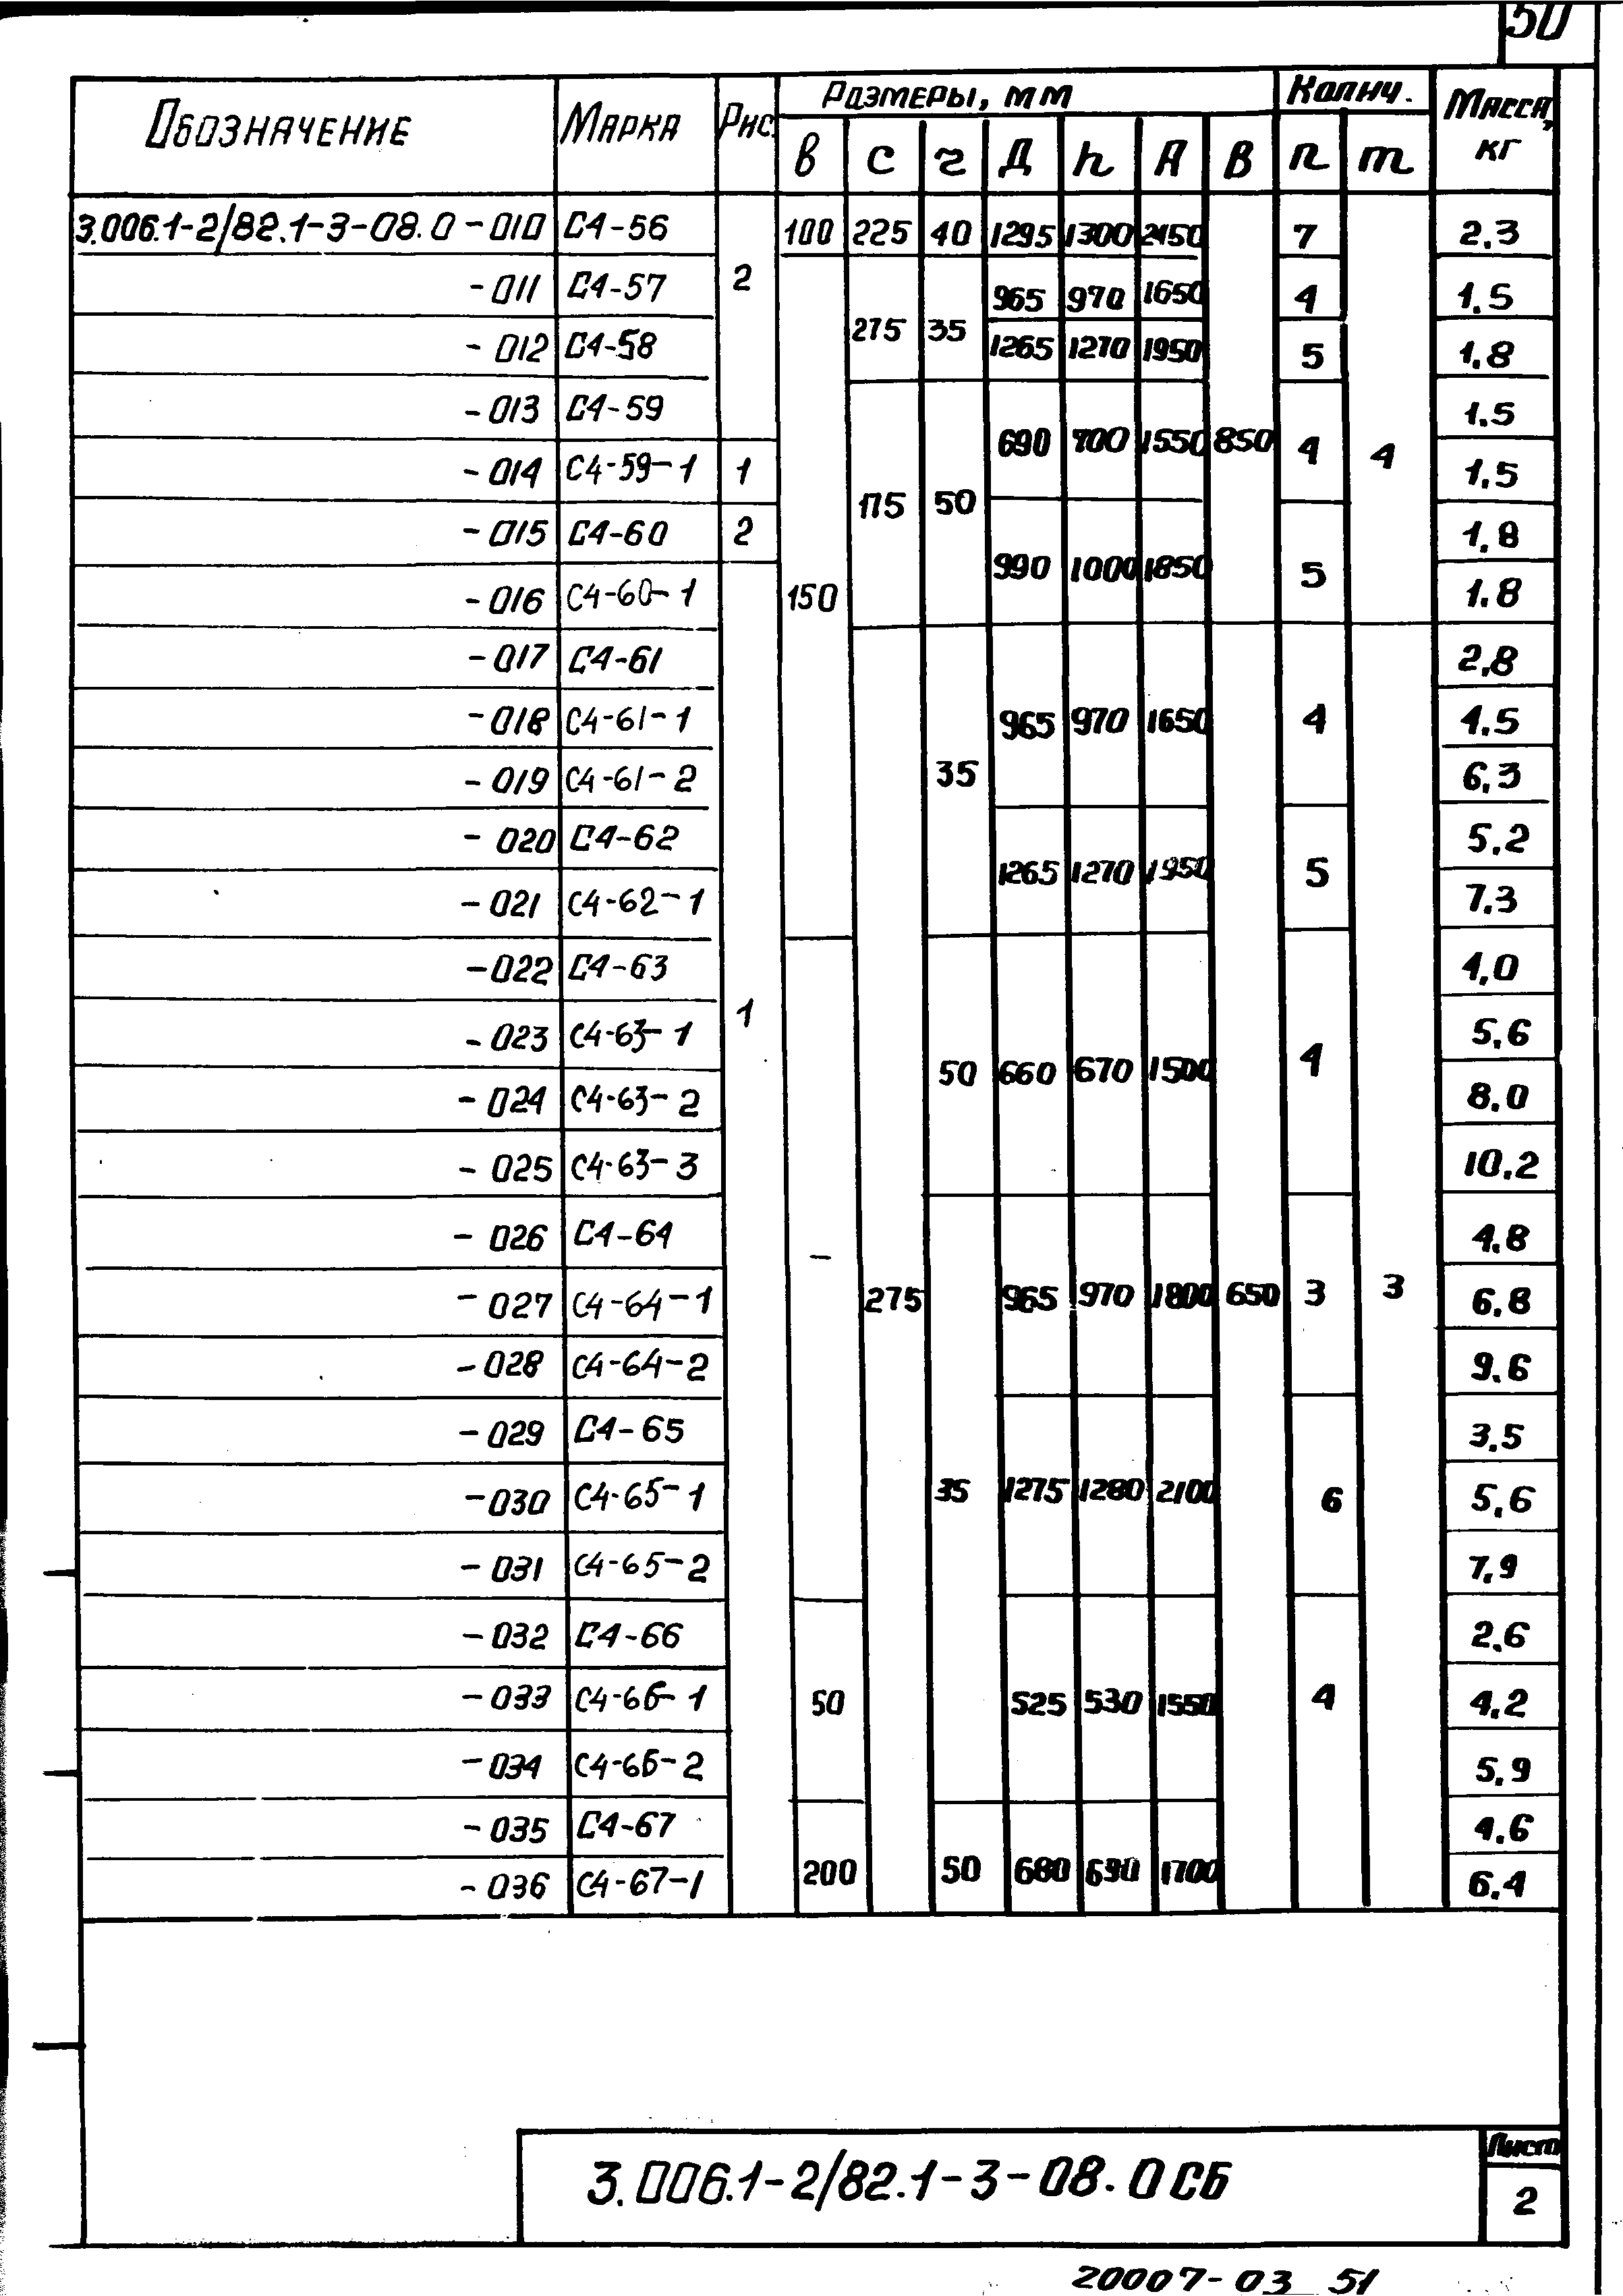 50
Обозначение Марка Рис. Размеры, мм Колич. Масса, кг
в с г Д h А В n m
3.006.1-2/82.1-3-08.0-010 С4-56 2 100 225 40 1295 1300 2150 7 2.3
-011 С4-57 275 35 965 970 1650 4 1.5
-012 С4-58 1265 1270 1950 5 1.8
-013 С4-59 690 700 1550 850 4 4 1.5
-014 С4-59-1 1 1.5
-015 С4-60 2 175 50 990 1000 1850 5 1.8
-016 С4-60-1 150 1.8
-017 С4-61 2,8
-018 С4-61-1 965 970 1650 4 4.5
-019 С4-61-2 35 6,3
-020 С4-62 1265 1270 1950 5 5.2
-021 С4-62-1 7.3
-022 С4-63 4,0
-023 С4-63-1 1 50 660 670 1500 4 5.6
-024 С4-63-2 8.0
-025 С4-63-3 10.2
-026 С4-64 - 4.8
-027 С4-64-1 275 965 970 1800 650 3 3 6.8
-028 С4-64-2 9.6
-029 С4-65 3.5
-030 С4-65-1 35 1275 1280 2100 6 5.6
-031 С4-65-2 7.9
-032 С4-66 2.6
-033 С4-66-1 50 525 530 1550 4 4.2
-034 С4-66-2 5.9
-035 С4-67 4.6
-036 С4-67-1 200 50 680 690 1700 6.4
3.006.1-2/82.1-3-08.0СБ
Лист
2
20007-03 51